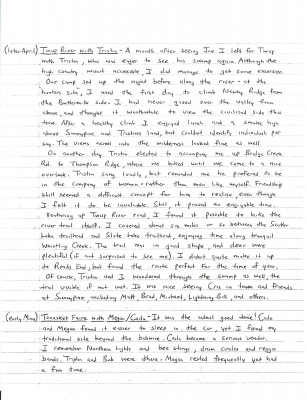 (later April) Twisp River with Tristin - A month after seeing Joe I left for Twisp
with Tristin, who was eager to see his swamp again. Although the
high country wasn't accessible, I did manage to get some exercise.
Our camp set up the night before along the river - at the
hunters site, I used the first day to climb Newby Ridge from
the Buttermilk side. I had never gazed over the valley from
above, and thought it worthwhile to view the civilized side this
time. After a healthy climb I enjoyed lunch and a smoke high
above Sunnypine and Tristin's land, but couldn't identify individuals per
say. The views across into the wilderness looked fine as well.
On another day Tristin elected to accompany me up Bridge Creek
Rd. to Thompson Ridge, where we biked until we came to a nice
overlook. Tristin sang loudly, but reminded me he preferred to be
in the company of women rather than men like myself. Friendship
still seemed a difficult concept for him to realize even though
I felt it to be invaluable. Still, it proved an enjoyable time.
Venturing up Twisp River road, I found it possible to hike the
river trail itself. I covered about six miles or so between the Scatter
Lake trailhead and Slate Lake trailhead, enjoying time along tranquil
Whistling Creek. The trail was in good shape, and deer were
plentiful (if not surprised to see me). I didn't quite make it up
to Roads End, but found the route perfect for the time of year.
Of course, Tristin and I wandered through the swamp as well, the
trail visible if not wet. It was nice seeing in town and friends
at Sunnypine, including Matt, Brad, Michael, Lightning Bill, and others.
(early May) Tonasket Faire with Megan/Carla - It was the usual good time! Carla
and Megan found it easier to sleep in the car, yet I found my
traditional site beyond the bushmire. Carla became a serious vendor.
I remember Northern Lights and bee stings, drum circles and reggie
bands. Tristin and Bob were there. Megan rested frequently yet had
a fun time.